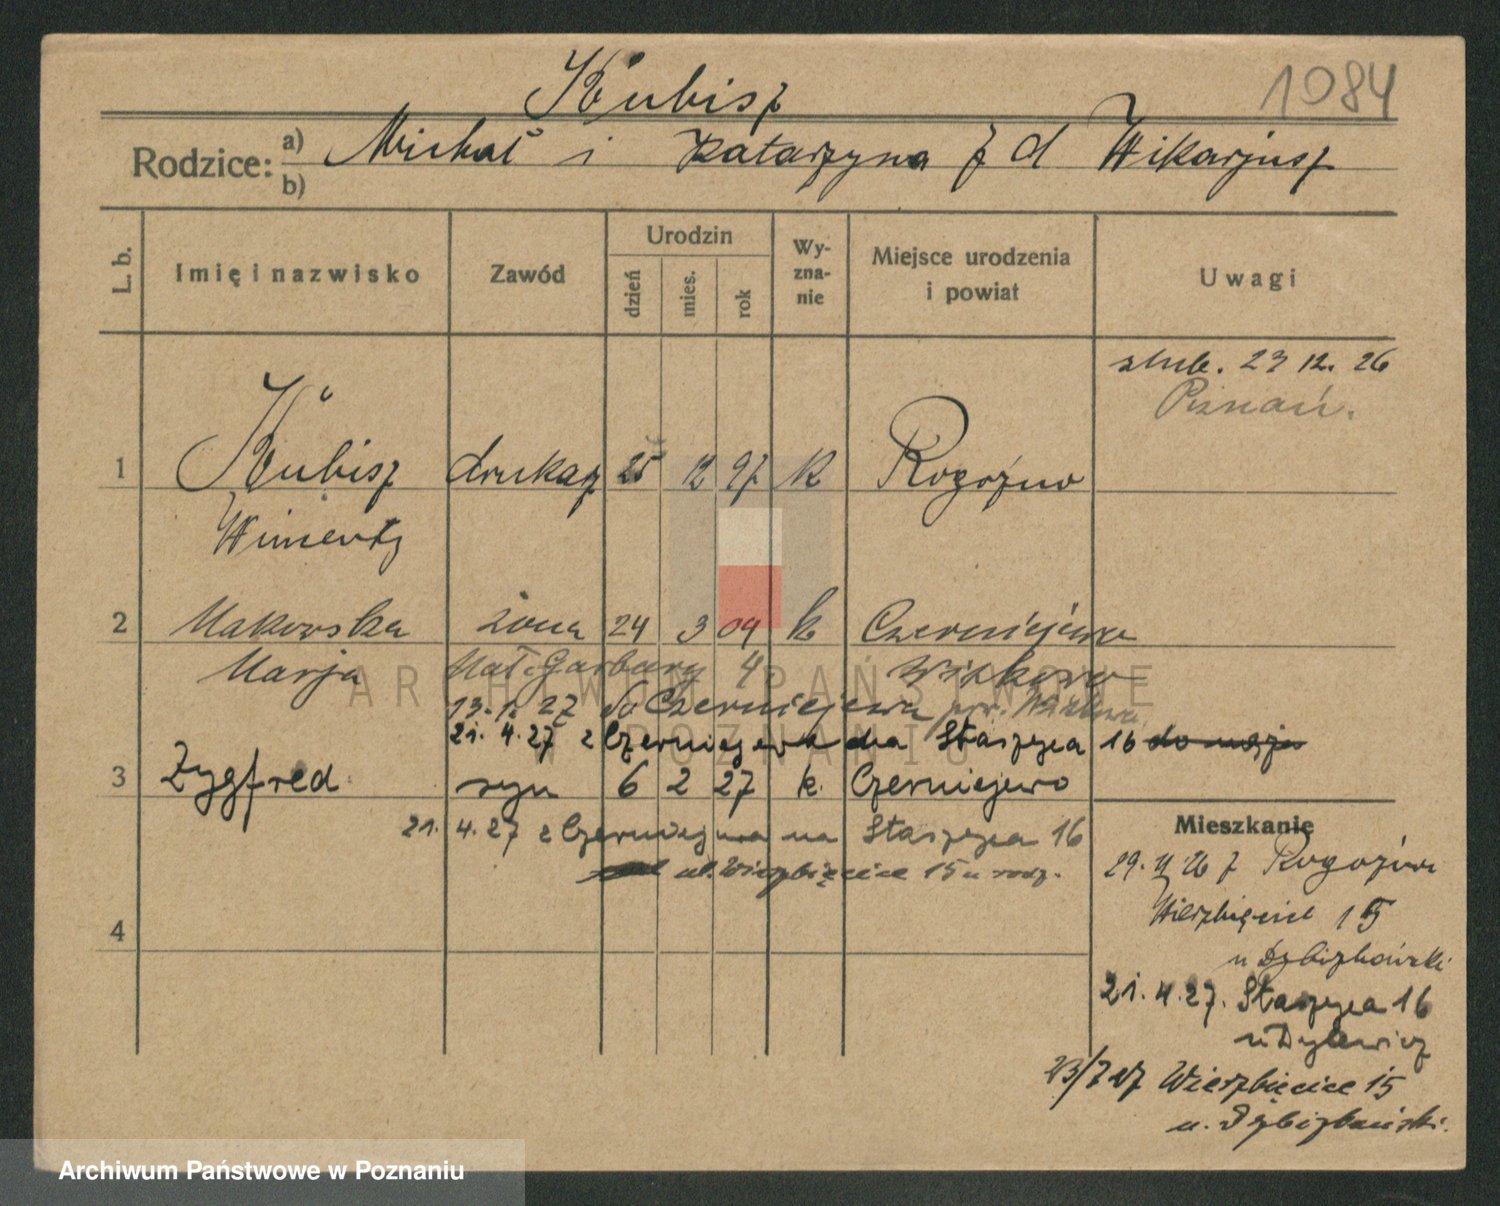 Kubisz
1084
Rodzice: a) Michał i Katarzyna z d Wikarjusz
b)
L. b.
Imię i nazwisko
Zawód
Urodzin
dzień
mies.
rok
Wy-
zna-
nie
Miejsce urodzenia
i powiat
Uwagi
ślub. 23 12. 26
Poznań.
1 Kubisz drukarz 25 12 97 k Rogoźno
Wincenty
2 Makowska żona 24 3 04 k Czerniejewo
Marja Mał. Garbary 4. Witkowo
13.1.27 do Czerniejewa pow. Witkowo
21. 4. 27 z Czerniejewa na Staszyca 16
3 Zygfred syn 6 2 27 k. Czerniejewo
21. 4. 27 z Czerniejewa na Staszyca 16
ul. Wierzbięcice 15 u rodz.
4
Mieszkanie
29. 11 26 z Rogoźna
Wierzbięcice 15
21. 4. 27. Staszyca 16
23/7 27 Wierzbięcice 15
ARCHIWUM PAŃSTWOWE
W POZNANIU
Archiwum Państwowe w Poznaniu